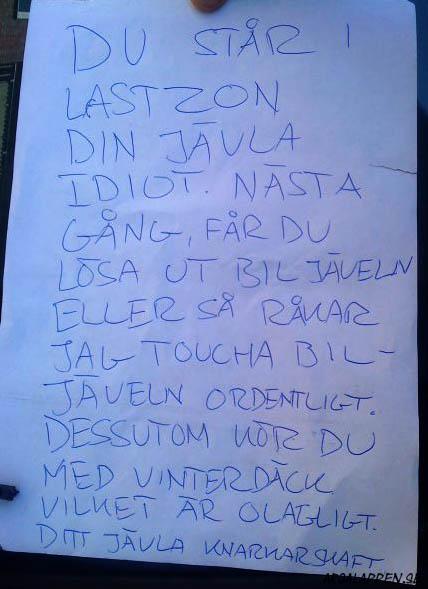 DU STÅR I
LASTZON
DIN JÄVLA
IDIOT. NÄSTA
GÅNG, FÅR DU
LÖSA UT BILJÄVELN
ELLER SÅ RÅKAR
JAG TOUCHA BIL-
JÄVELN ORDENTLIGT.
DESSUTOM KÖR DU
MED VINTERDÄCK
VILKET ÄR OLAGLIGT.
DITT JÄVLA KNARKARSKAFT
ARGALAPPEN.SE